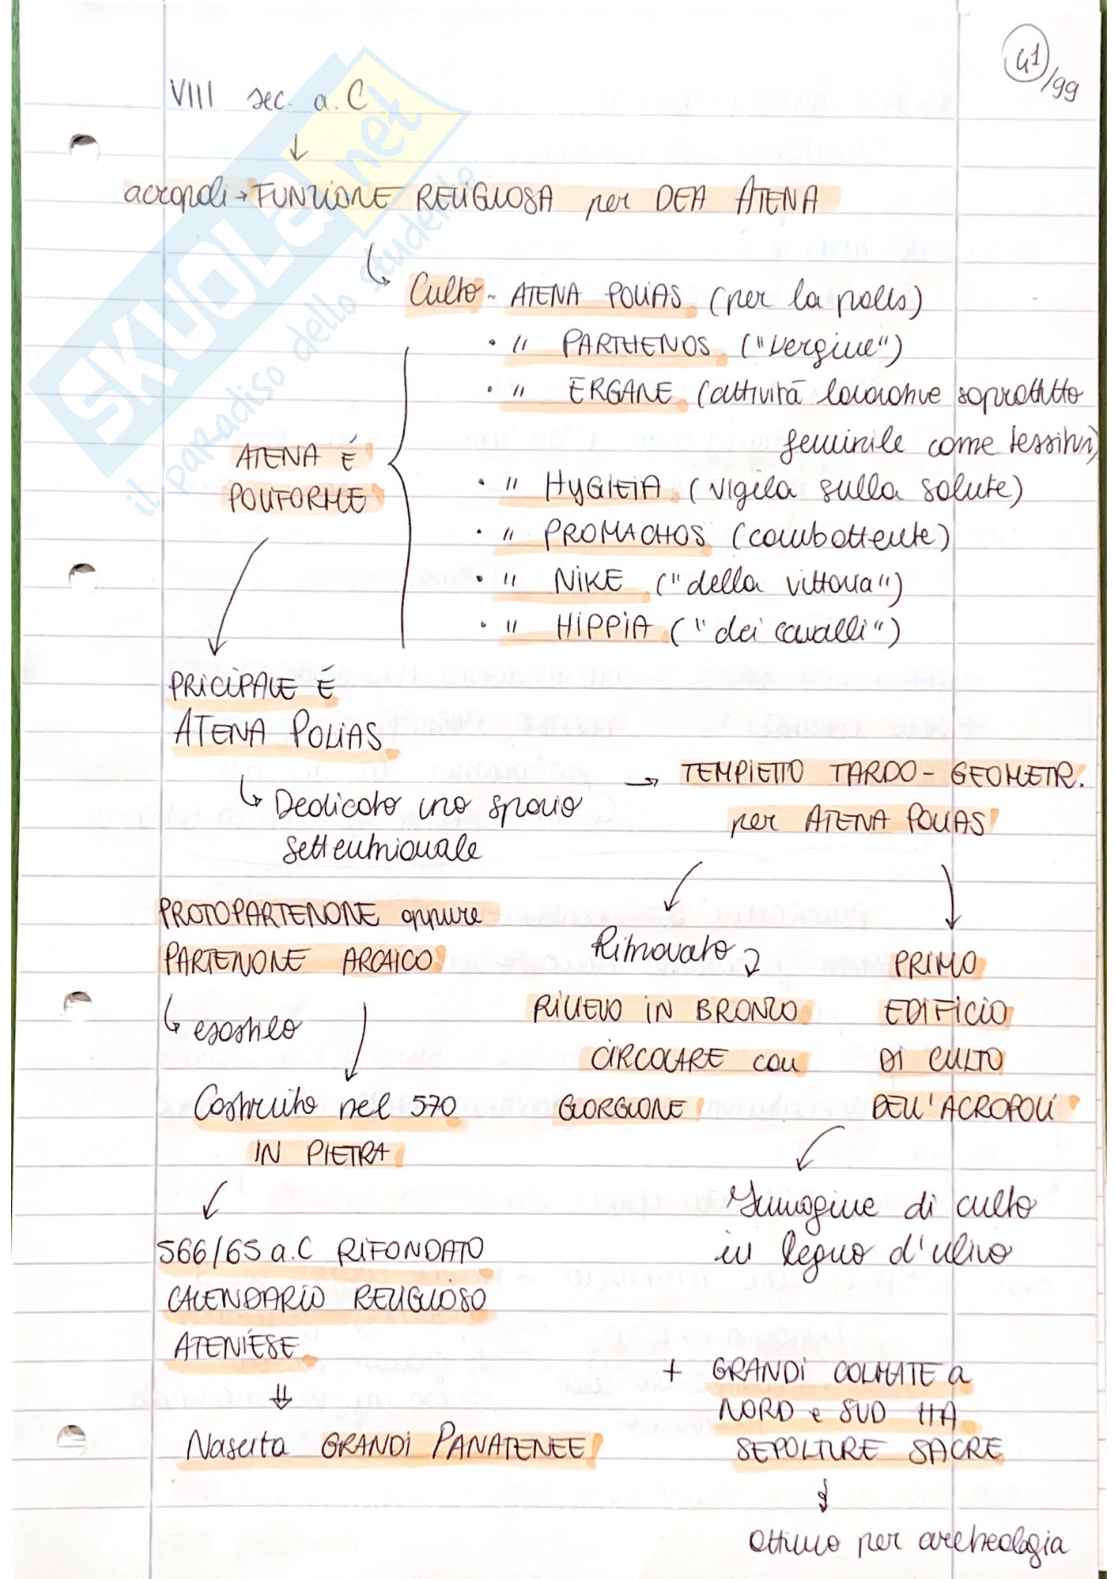 41/99
VIII sec. a.C
acropoli → FUNZIONE RELIGIOSA per DEA ATENA
Culto - ATENA POLIAS (per la polis)
• " PARTHENOS ("vergine")
• " ERGANE (attività lavorative soprattutto
femminile come tessitura)
ATENA È
POLIFORME
• " HYGIEIA (vigila sulla salute)
• " PROMACHOS (combattente)
• " NIKE ("della vittoria")
• " HIPPIA ("dei cavalli")
PRICIPALE È
ATENA POLIAS
↳ Dedicato uno spazio
settentrionale
→ TEMPIETTO TARDO-GEOMETR.
per ATENA POLIAS
PROTOPARTENONE oppure
PARTENONE ARCAICO
↳ esastilo
Costruito nel 570
IN PIETRA
566/65 a.C RIFONDATO
CALENDARIO RELIGIOSO
ATENIESE
⇓
Nascita GRANDI PANATENEE
Ritrovato
RILIEVO IN BRONZO
CIRCOLARE con
GORGONE
PRIMO
EDIFICIO
DI CULTO
DELL'ACROPOLI
Immagine di culto
in legno d'ulivo
+ GRANDI COLMATE a
NORD e SUD
SEPOLTURE SACRE
ottimo per archeologia
SKUOLA.net
il paradiso dello studente